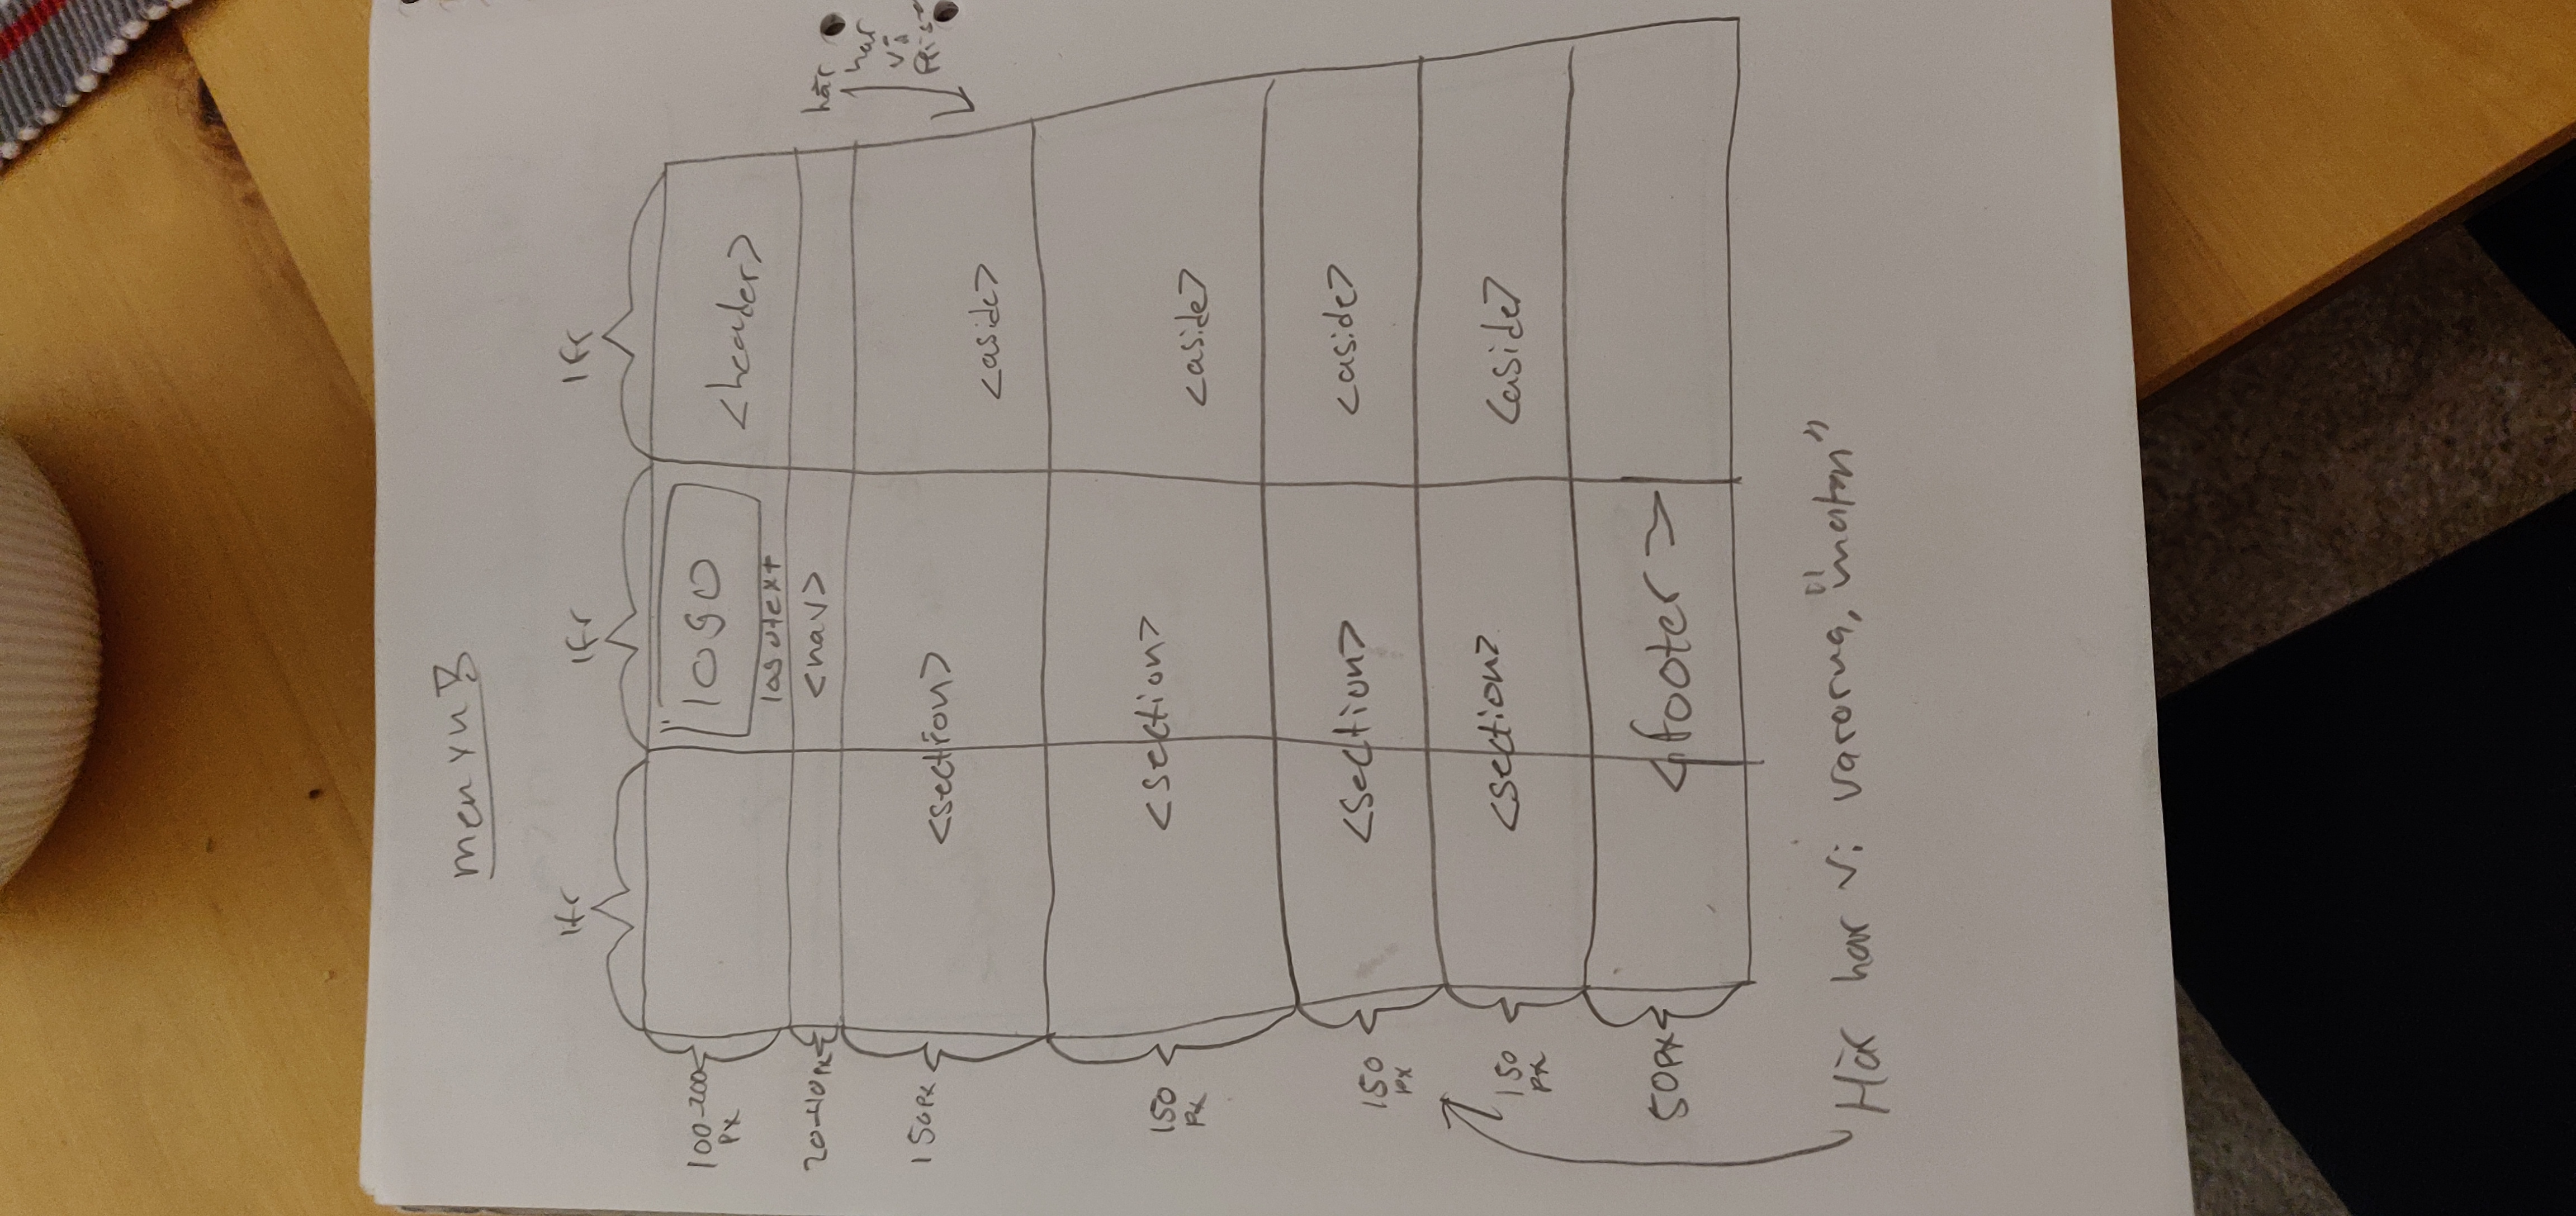 menyn
1fr 1fr 1fr
100-200
px
logo
logotext
<header>
20-40px
<nav>
här
har
vi
150px
<section>
<aside>
150
px
<section>
<aside>
150
px
<section>
<aside>
150
px
<section>
<aside>
50px
<footer>
Här har vi varorna, "maten"